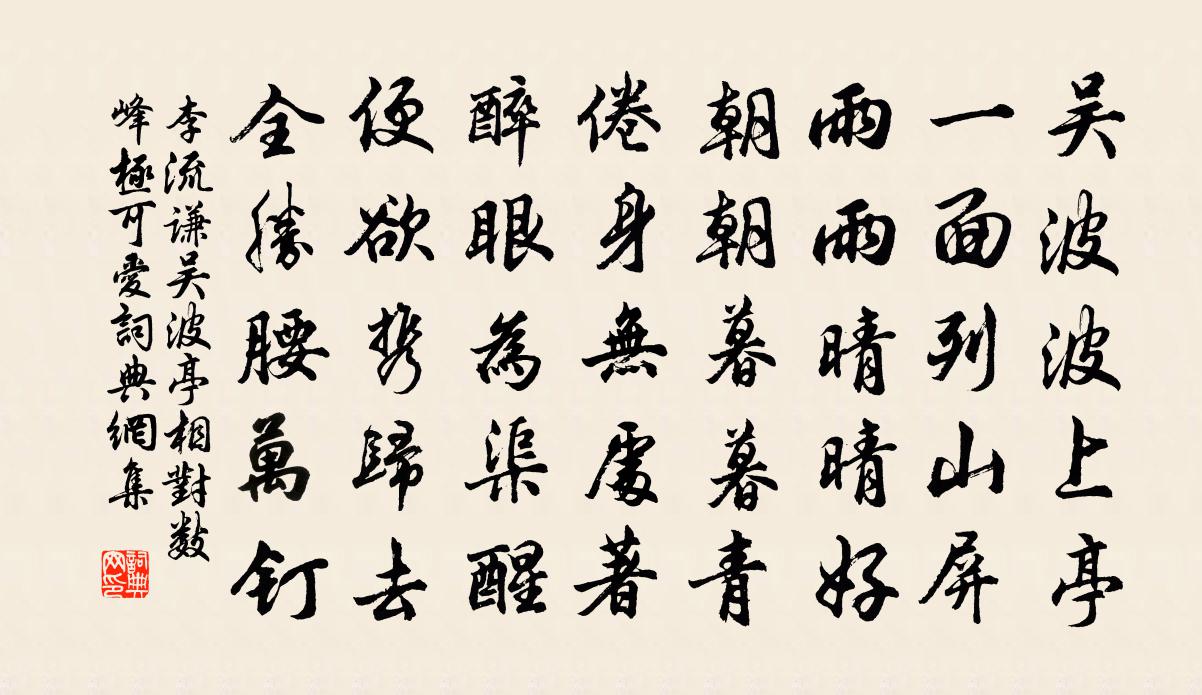 吴波波上亭
一面列山屏
雨雨晴晴好
朝朝暮暮青
倦身無處著
醉眼為渠醒
便欲携歸去
全勝腰萬釘
李流谦吴波亭相對数
峰極可愛詞典網集
詞典网印